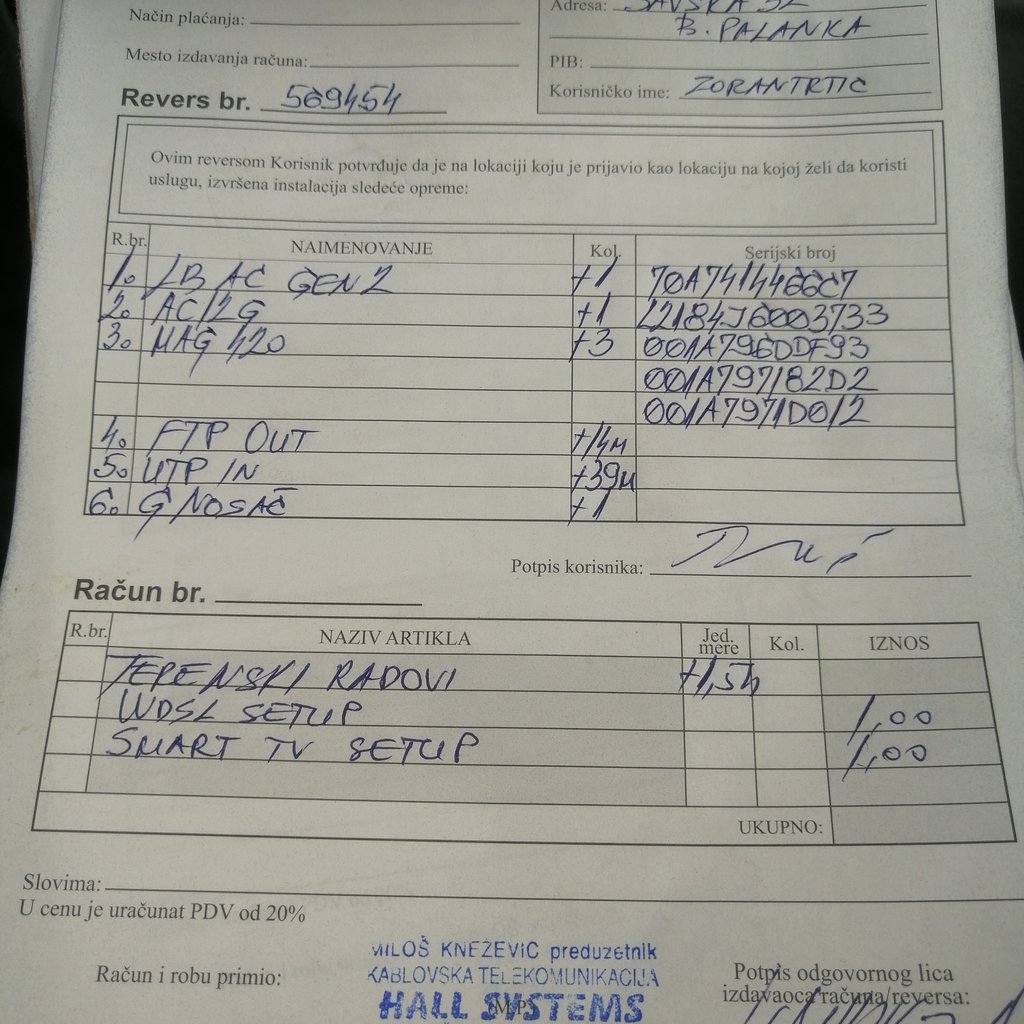 Način plaćanja:
Adresa: SAVSKA 32
B. PALANKA
Mesto izdavanja računa:
PIB:
Korisničko ime: ZORANTRTIC
Revers br. 569454
Ovim reversom Korisnik potvrđuje da je na lokaciji koju je prijavio kao lokaciju na kojoj želi da koristi
uslugu, izvršena instalacija sledeće opreme:
R.br. NAIMENOVANJE Kol. Serijski broj
1. LB AC GEN2 +1 70A7414466C7
2. AC12G +1 22184J6003733
3. MAG 420 +3 001A796DDF93
001A797182D2
001A7971D012
4. FTP OUT +14M
5. UTP IN +39M
6. G NOSAČ +1
Potpis korisnika:
Račun br.
R.br. NAZIV ARTIKLA Jed. mere Kol. IZNOS
TERENSKI RADOVI +1,5h
WDSL SETUP 1,00
SMART TV SETUP 1,00
UKUPNO:
Slovima:
U cenu je uračunat PDV od 20%
MILOŠ KNEŽEVIĆ preduzetnik
Račun i robu primio: KABLOVSKA TELEKOMUNIKACIJA Potpis odgovornog lica
HALL SYSTEMS M.P. izdavaoca računa/reversa: